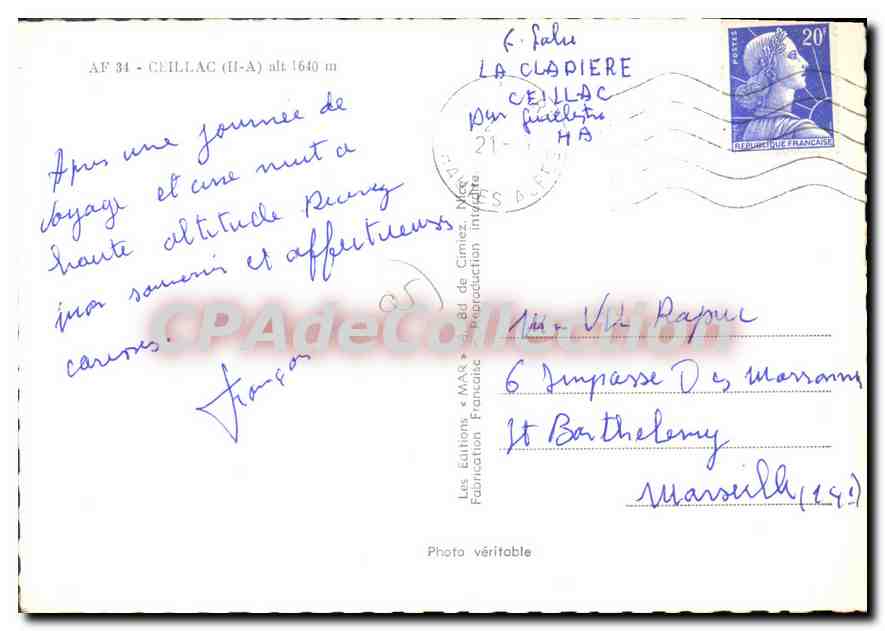 AF 34 - CEILLAC (H-A) alt 1640 m
Apres une journée de
voyage et une nuit a
haute altitude recevez
mon souvenir et affectueuses
caresses.
François
LA CLAPIERE
CEILLAC
par Guillestre
HA
21
HAUTES ALPES
POSTES
20F
REPUBLIQUE FRANÇAISE
05
Les Editions « MAR » Bd de Cimiez, Nice
Fabrication Française Reproduction interdite
6 Impasse Des Marronniers
St Barthelemy
Marseille (14e)
Photo véritable
CPAdeCollection